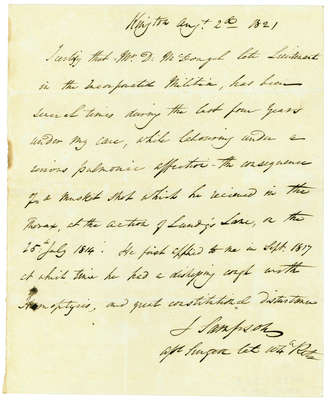 Kingston Augt. 2d 1821
I certify that Mr. D. McDougal late Lieutenant
in the Incorporated Militia, has been
several times during the last four years
under my care, while labouring under a
serious pulmonic affection the consequence
of a musket shot which he received in the
Thorax, at the action of Lundy's Lane, on the
25th July 1814. He first applied to me in Sept. 1817
at which time he had a distressing cough with
Hæmoptysis, and great constitutional disturbance
J Sampson
Surgeon late 104th Regt